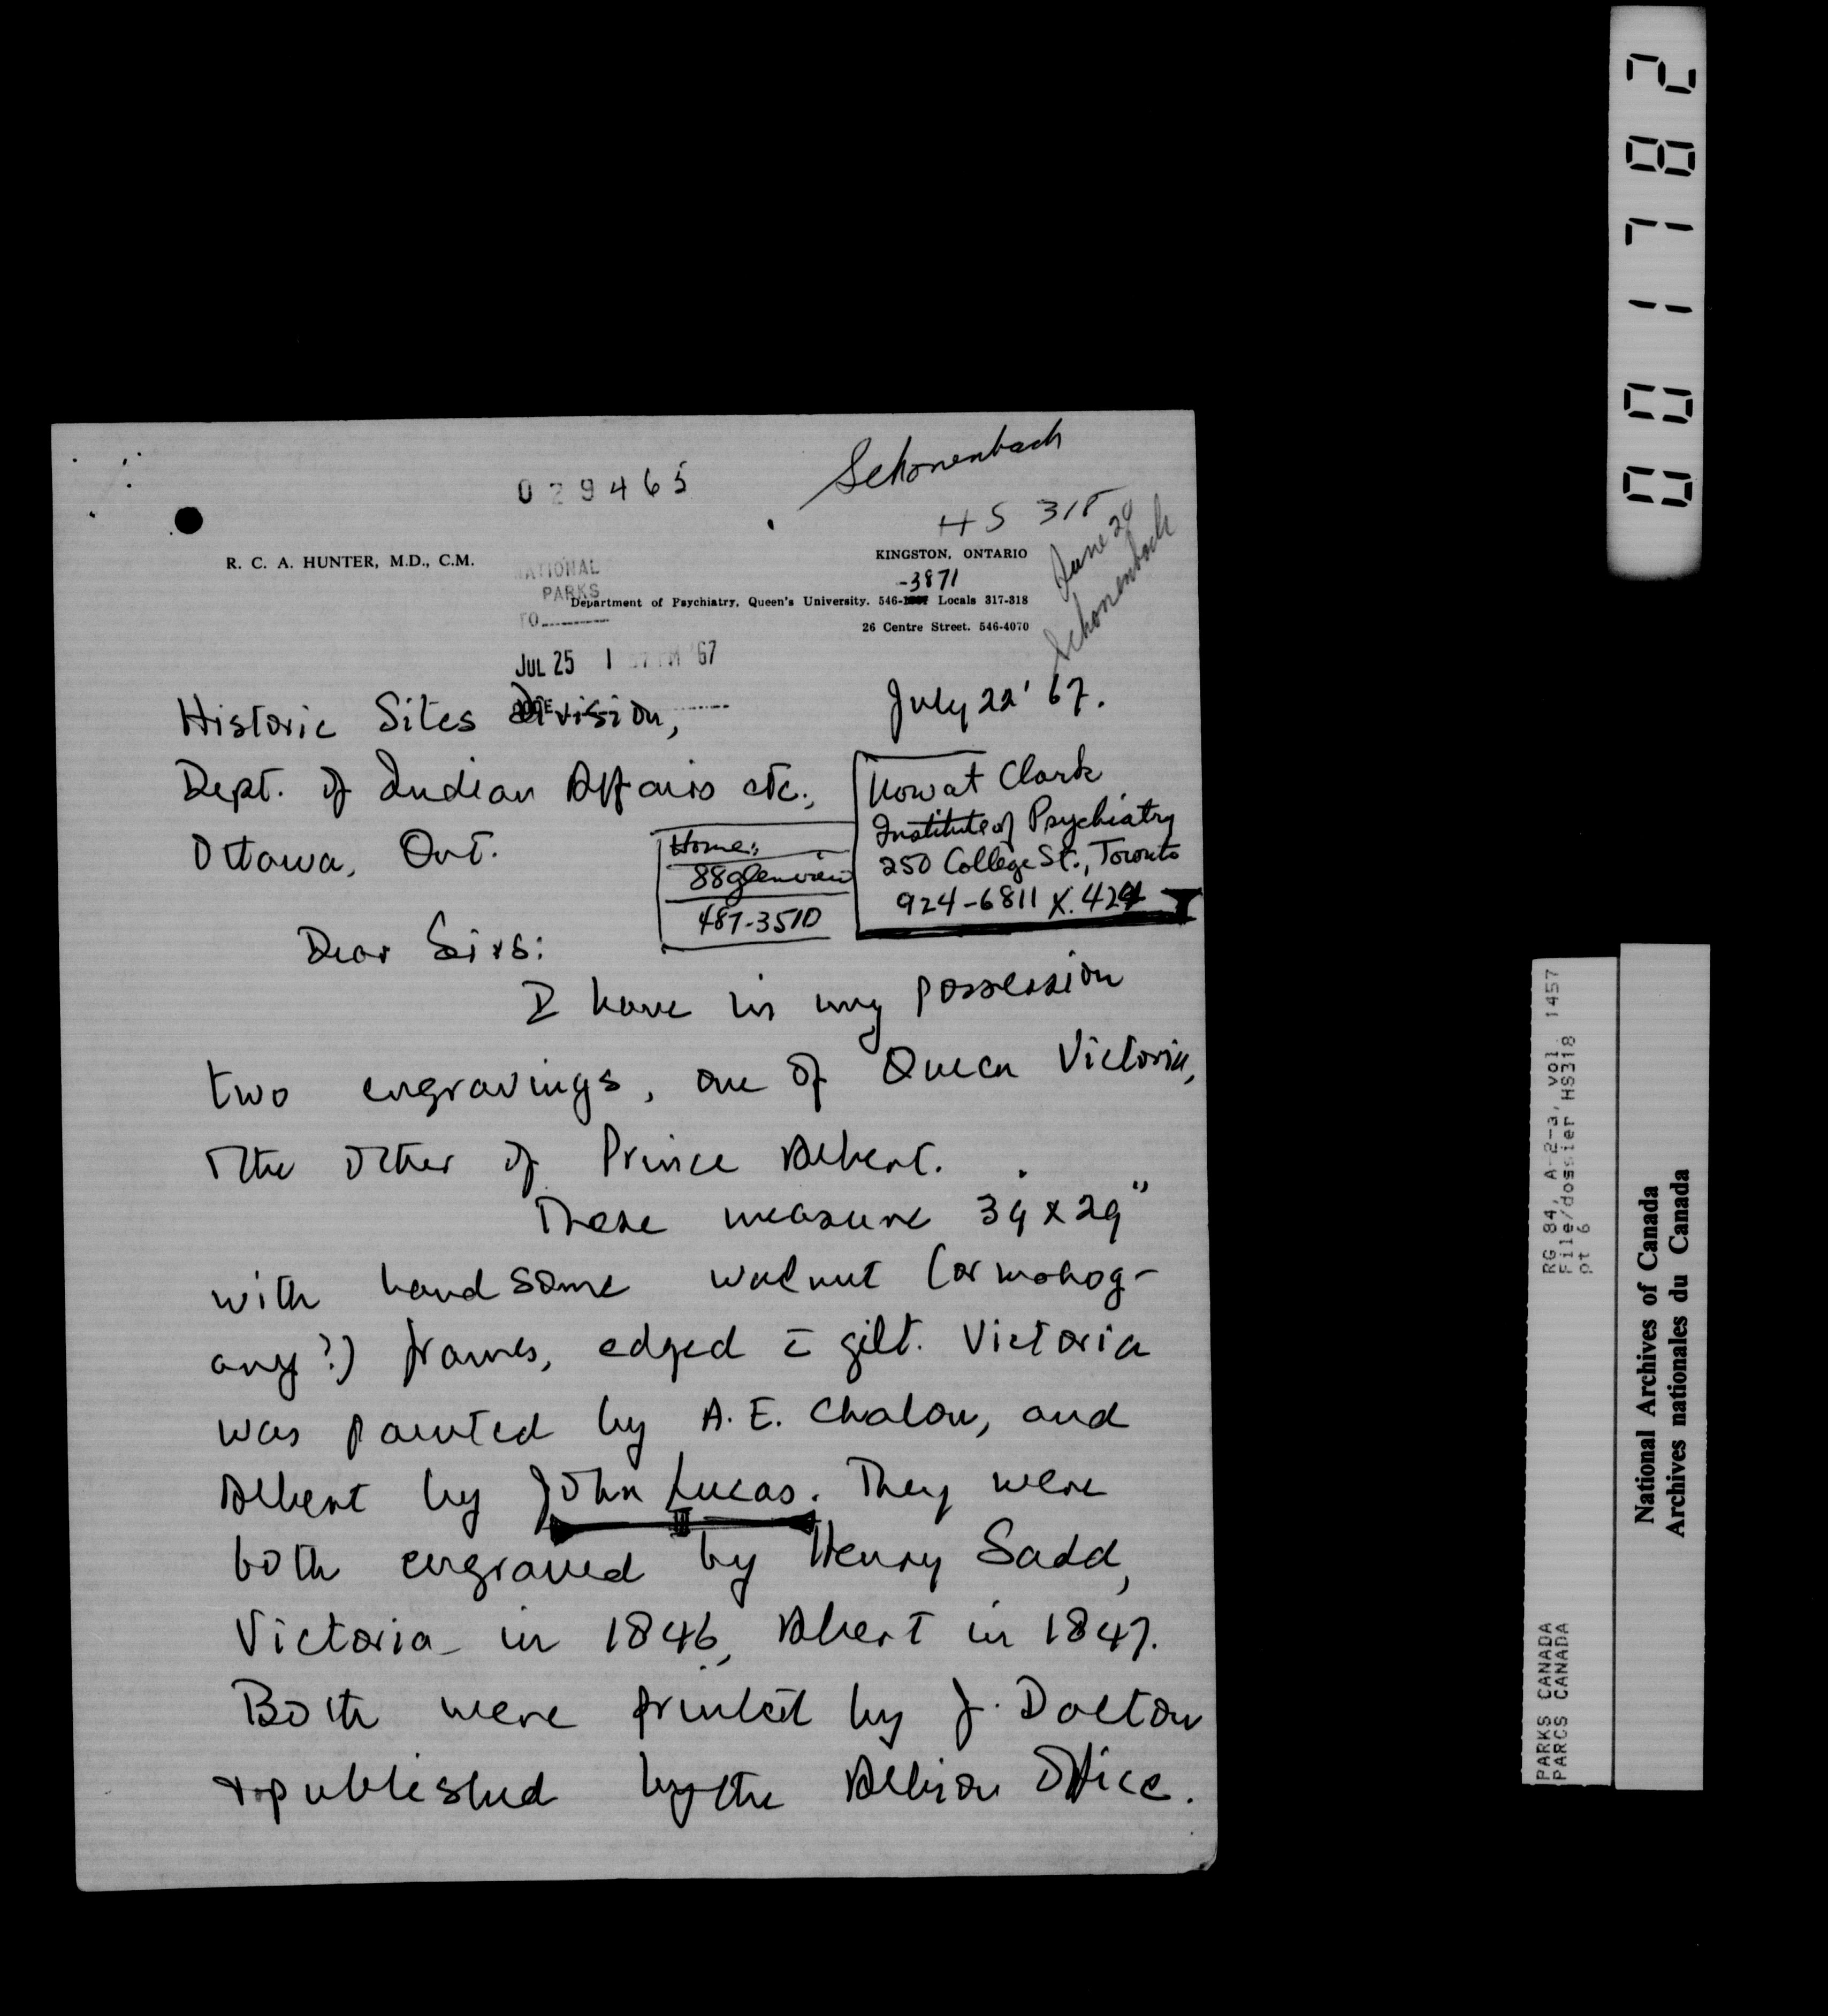 Schonenbach
029465
HS 318
June 20
Schonenbach
R. C. A. HUNTER, M.D., C.M.
KINGSTON, ONTARIO
-3871
Department of Psychiatry, Queen's University. 546- Locals 317-318
26 Centre Street. 546-4070
NATIONAL
PARKS
TO
JUL 25 1 PM '67
July 22' 67.
Historic Sites Division,
Dept. of Indian Affairs etc.,
Ottawa, Ont.
Mowat Clark
Institute of Psychiatry
250 College St., Toronto
924-6811 X. 424
Home:
88 Glenview
487-3510
Dear Sirs:
I have in my possession
two engravings, one of Queen Victoria,
the other of Prince Albert.
These measure 39 x 29"
with handsome walnut (or mahog-
any?) frames, edged c̄ gilt. Victoria
was painted by A. E. Chalon, and
Albert by John Lucas. They were
both engraved by Henry Sadd,
Victoria in 1846, Albert in 1847.
Both were printed by J. Dalton
+ published by the Albion Office.
001782
RG 84, A-2-a, vol. 1457
File/dossier HS318
pt 6
PARKS CANADA
PARCS CANADA
National Archives of Canada
Archives nationales du Canada